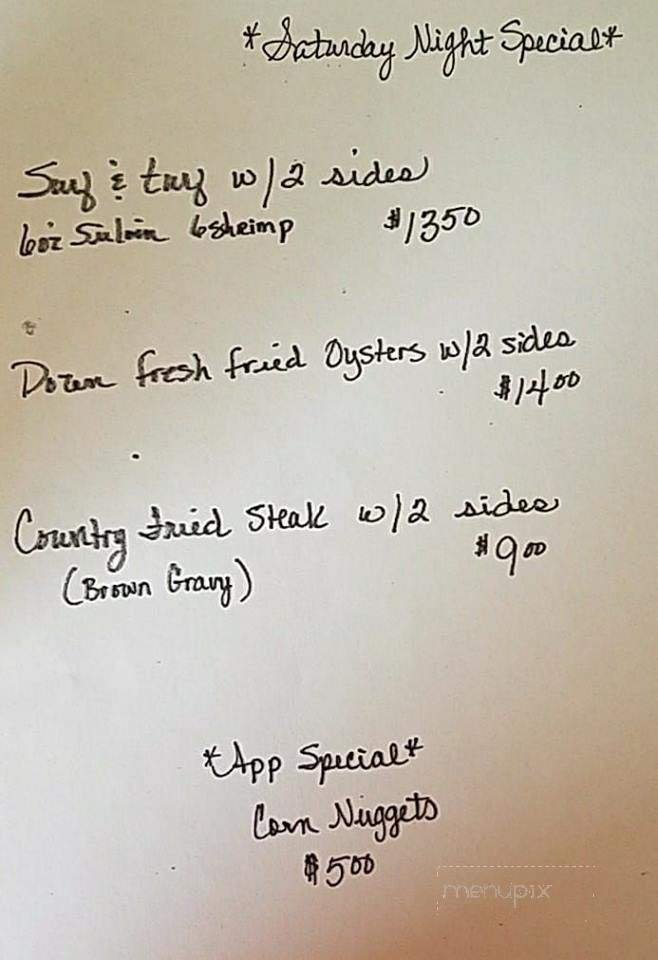 *Saturday Night Special*
Surf & turf w/2 sides
6oz Sirloin 6 shrimp $13 50
Dozen fresh fried Oysters w/2 sides
$14 00
Country fried Steak w/2 sides
$9 00
(Brown Gravy)
*App Special*
Corn Nuggets
$5 00
menupix